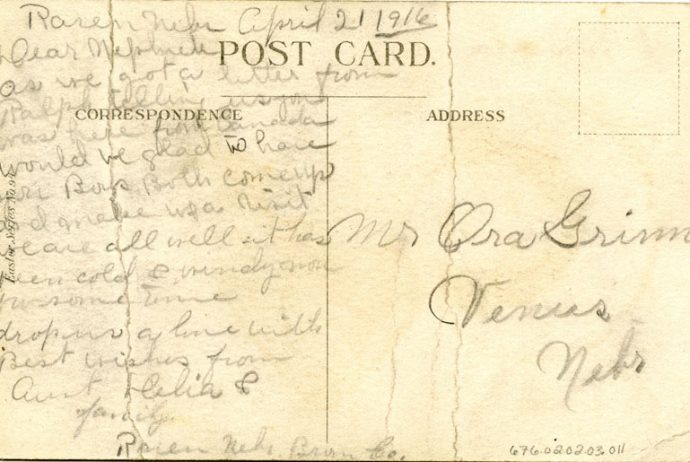 Raven Nebr April 21 1916
Dear Nephew
POST CARD.
as we got a letter from
Ralph telling us you
CORRESPONDENCE
ADDRESS
was here from Canada
would be glad to have
you Boys Both come up
and make us a visit
we are all well it has
been cold & windy now
for some time
drop us a line with
Best wishes from
Aunt Celia &
family.
Raven Nebr. Brown Co.
Easter Series No.
Mr Ora Grimm
Venus
Nebr
676.02.02.03.011